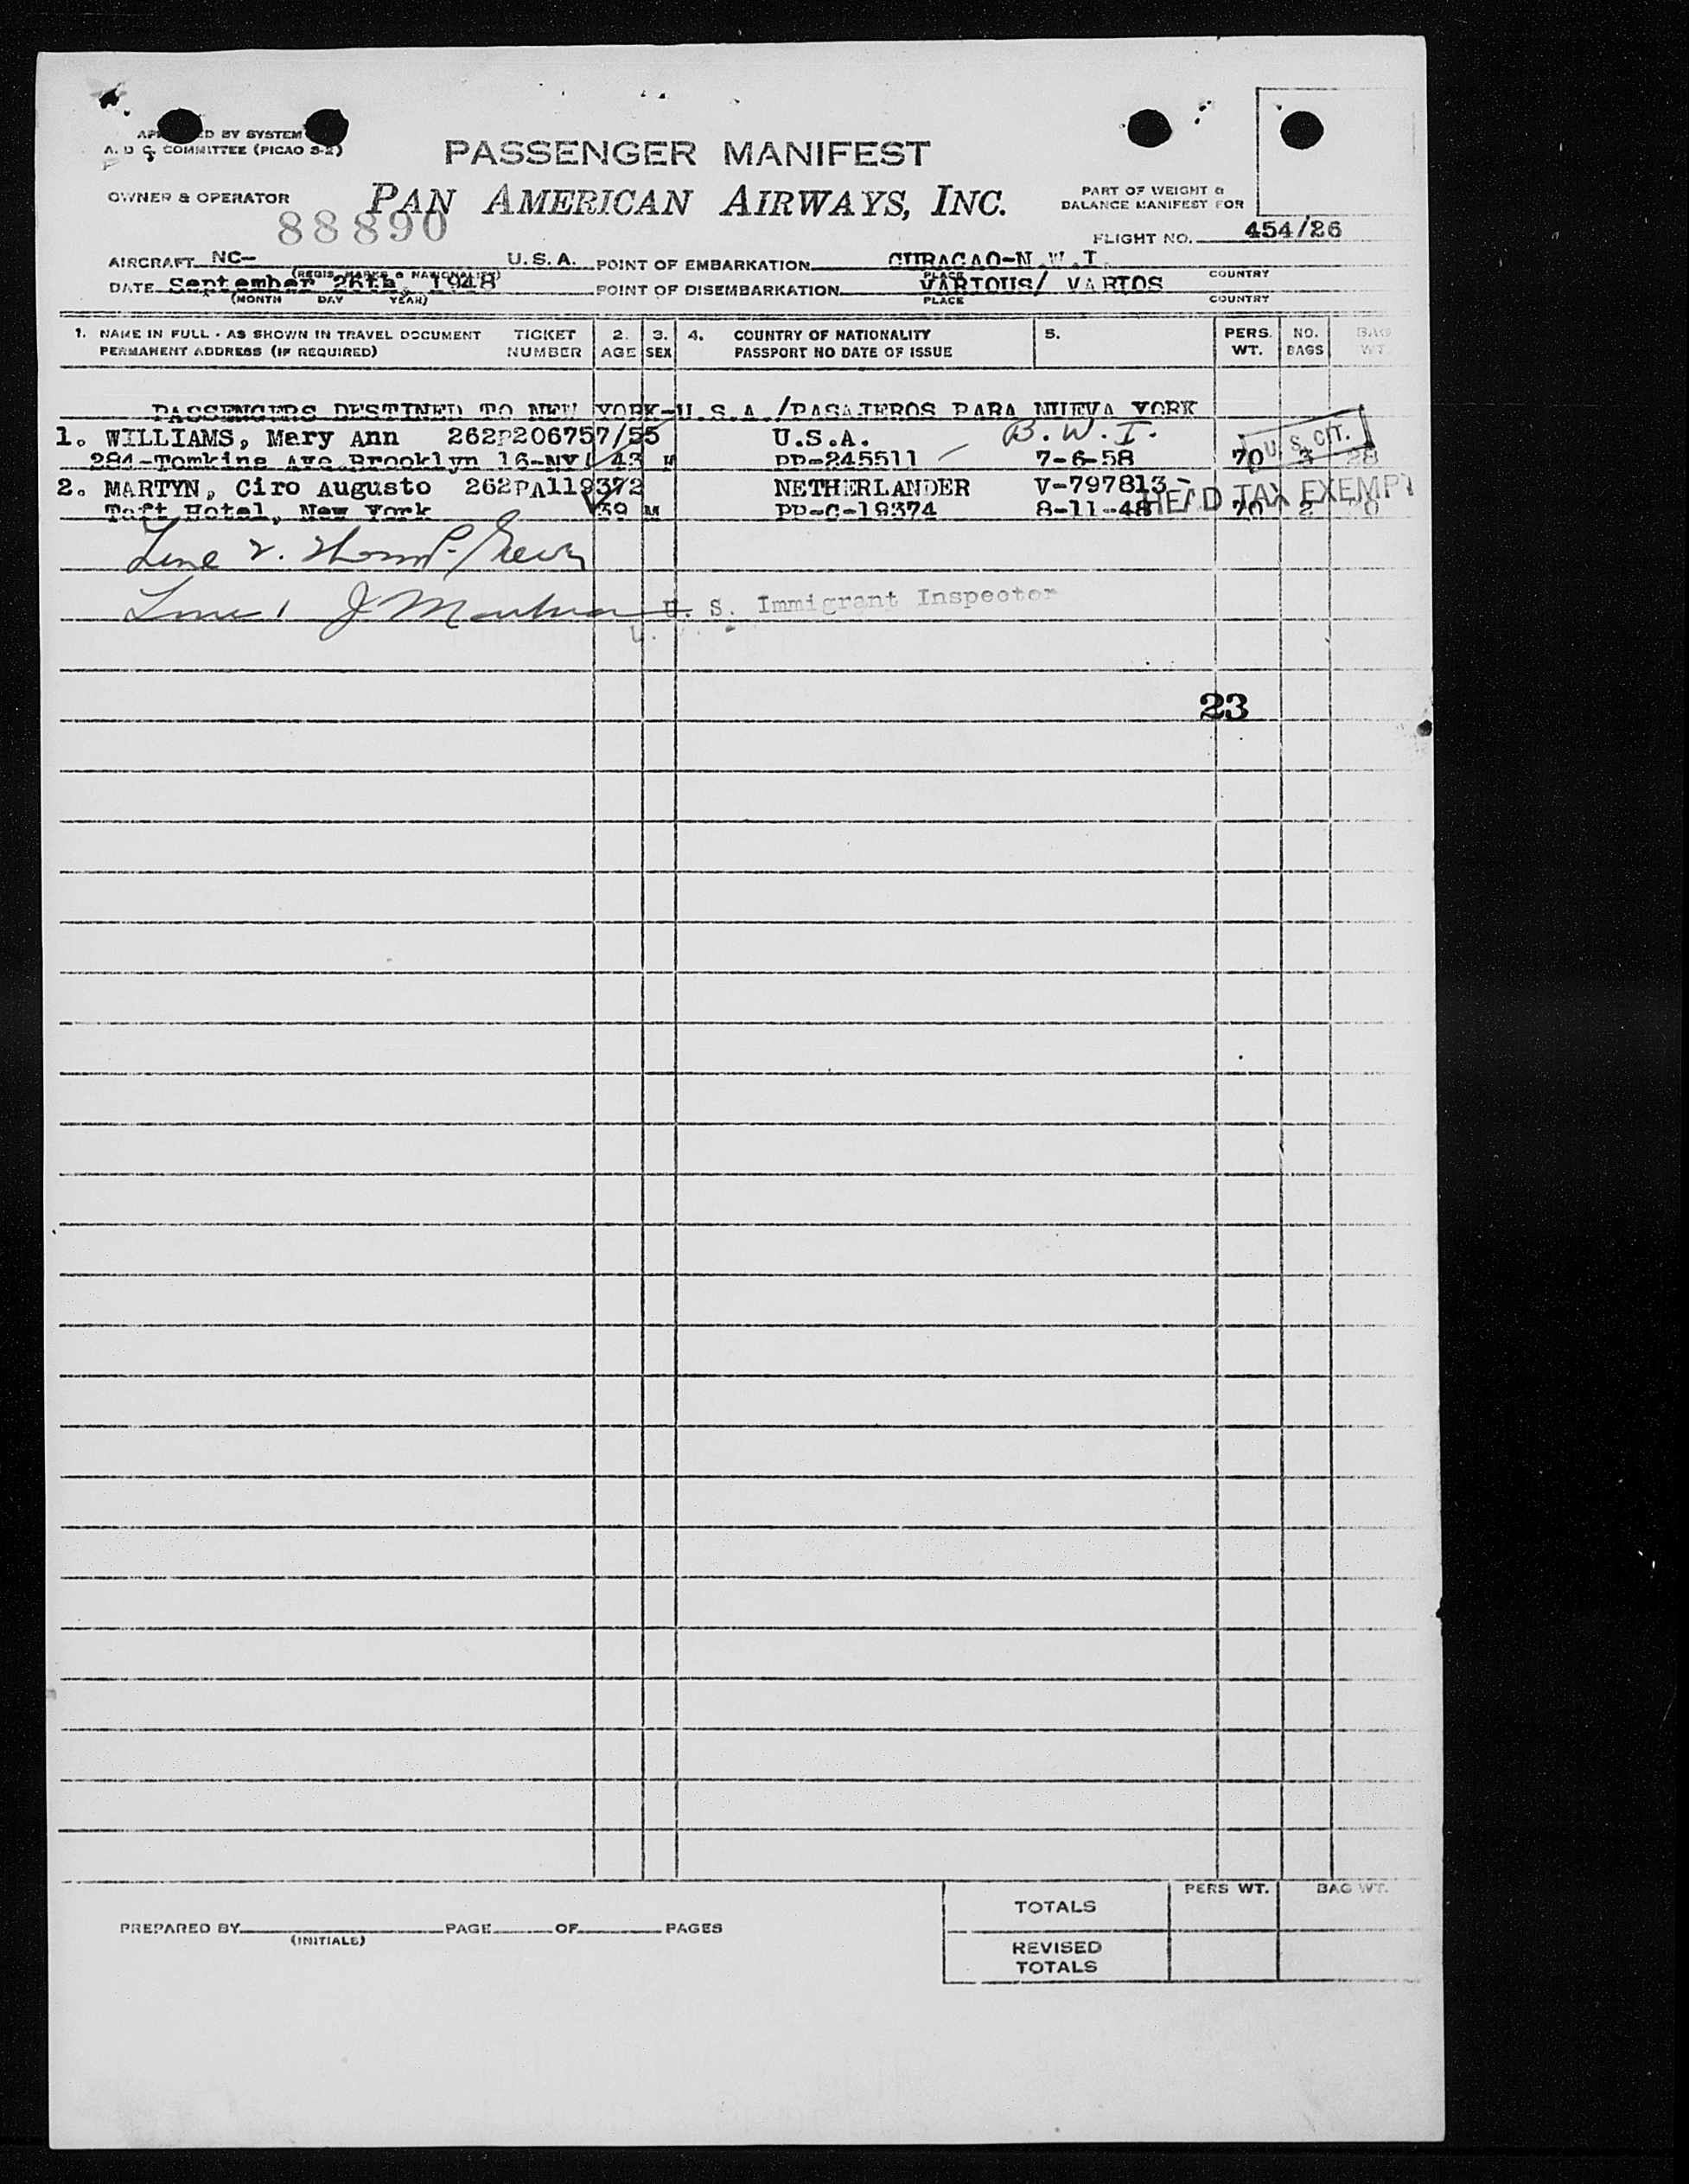 BY SYSTEM
A. D C. COMMITTEE (PICAO S-2)
PASSENGER MANIFEST
OWNER & OPERATOR PAN AMERICAN AIRWAYS, INC.
PART OF WEIGHT &
BALANCE MANIFEST FOR
88890
FLIGHT NO. 454/26
AIRCRAFT NC- U.S.A. POINT OF EMBARKATION CURACAO-N.W.I.
(REGIS. MARKS & NATIONALITY) PLACE COUNTRY
DATE September 26th, 1948 POINT OF DISEMBARKATION VARIOUS/ VARIOS
(MONTH DAY YEAR) PLACE COUNTRY
1. NAME IN FULL - AS SHOWN IN TRAVEL DOCUMENT TICKET 2. 3. 4. COUNTRY OF NATIONALITY 5. PERS. NO. BAG
PERMANENT ADDRESS (IF REQUIRED) NUMBER AGE SEX PASSPORT NO DATE OF ISSUE WT. BAGS WT.
PASSENGERS DESTINED TO NEW YORK-U.S.A./PASAJEROS PARA NUEVA YORK
1. WILLIAMS, Mary Ann 262P206757/55 U.S.A. B.W.I. U.S. CIT.
284-Tomkins Ave Brooklyn 16-NY 43 PP-245511 7-6-58 70 3 28
2. MARTYN, Ciro Augusto 262PA119372 NETHERLANDER V-797813- HEAD TAX EXEMPT
Taft Hotel, New York 39 M PP-C-19374 8-11-48 70 2
J U. S. Immigrant Inspector
23
PERS WT. BAG WT.
TOTALS
PREPARED BY PAGE OF PAGES
(INITIALS)
REVISED
TOTALS